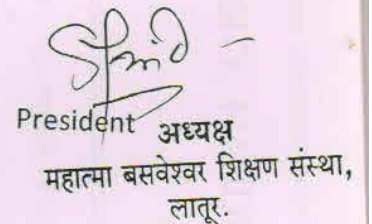 President अध्यक्ष
महात्मा बसवेश्वर शिक्षण संस्था,
लातूर.